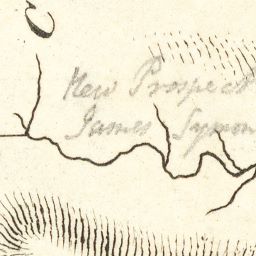 C
New Prospect
James Symon